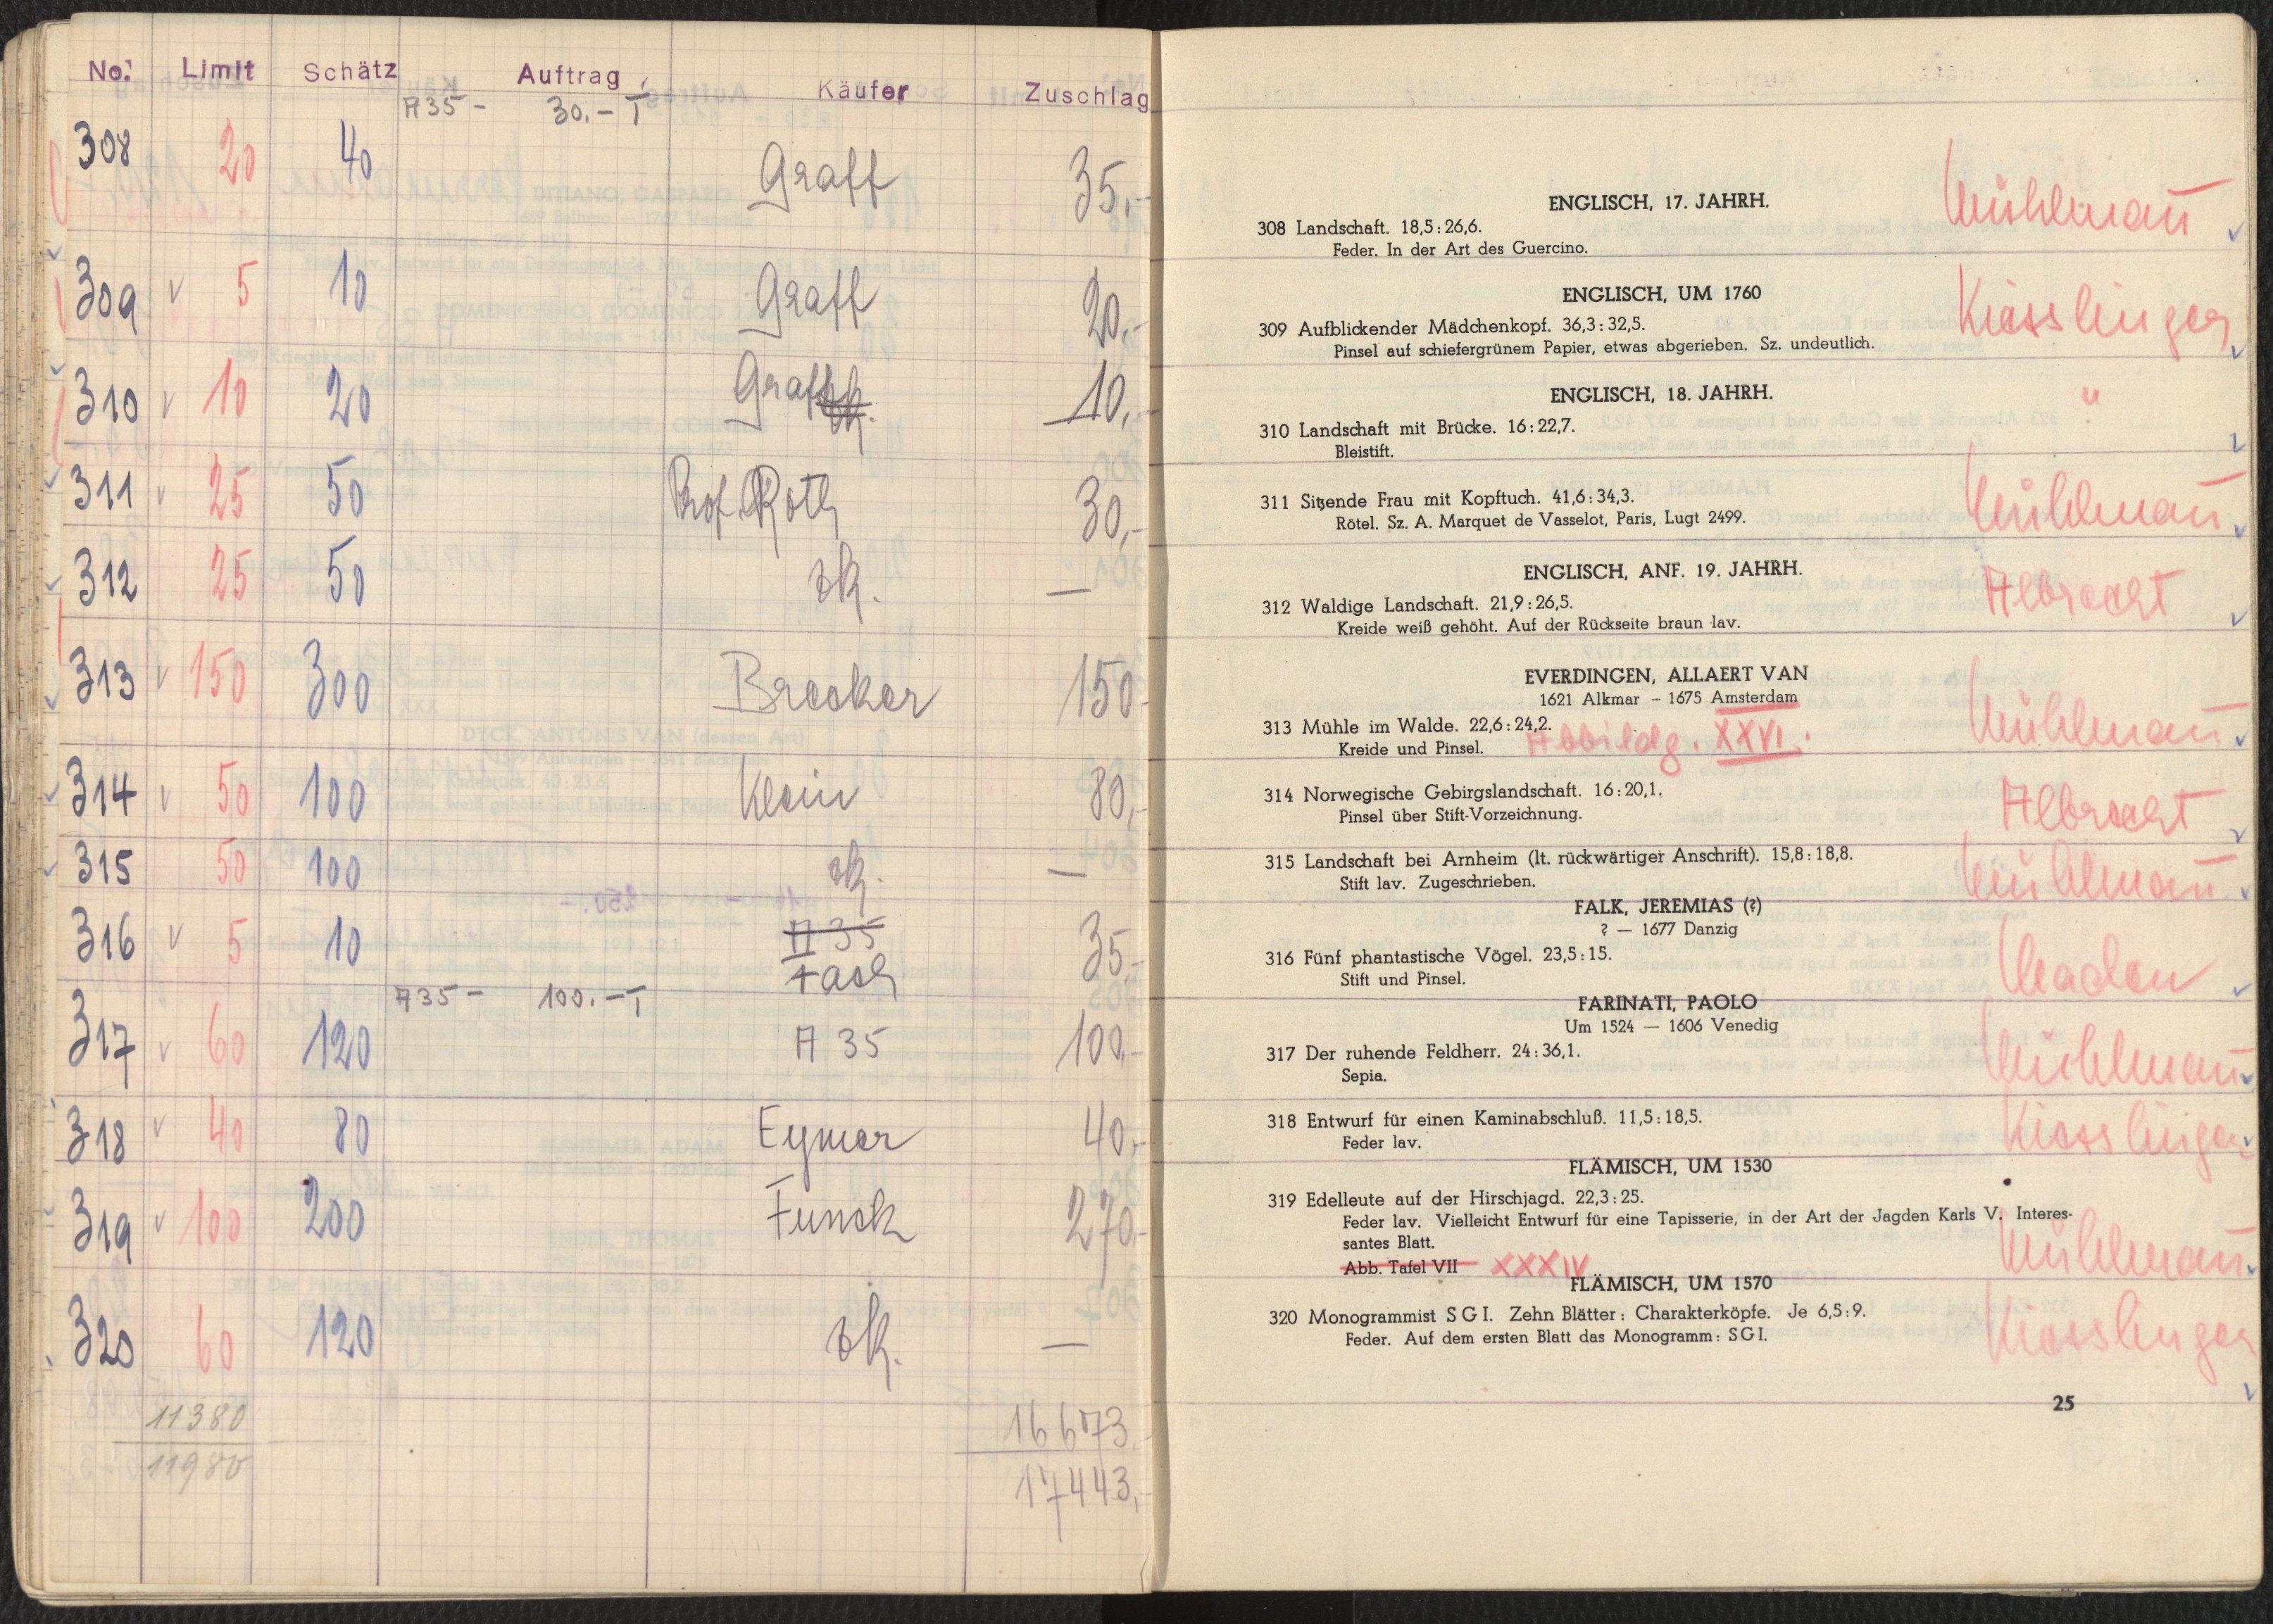 No. Limit Schätz Auftrag Käufer Zuschlag
A 35 - 30.- T
308 20 40 Graff 35,-
309 v 5 10 Graff 20,-
310 v 10 20 Graff 10,-
311 v 25 50 Prof. Roth 30,-
312 25 50 zk. —
313 v 150 300 Breeker 150-
314 v 50 100 Klein 80,-
315 50 100 zk. —
316 v 5 10 A 35 35,-
Fach
A 35 - 100.- T
317 v 60 120 A 35 100,-
318 v 40 80 Eymer 40,-
319 v 100 200 Funck 270,-
320 60 120 zk. —
11380 16673
11980 17443,-
ENGLISCH, 17. JAHRH.
Mühlmann
308 Landschaft. 18,5 : 26,6.
Feder. In der Art des Guercino.
ENGLISCH, UM 1760
Kiesslinger
309 Aufblickender Mädchenkopf. 36,3 : 32,5.
Pinsel auf schiefergrünem Papier, etwas abgerieben. Sz. undeutlich.
ENGLISCH, 18. JAHRH.
"
310 Landschaft mit Brücke. 16 : 22,7.
Bleistift.
311 Sitzende Frau mit Kopftuch. 41,6 : 34,3.
Mühlmann
Rötel. Sz. A. Marquet de Vasselot, Paris, Lugt 2499.
ENGLISCH, ANF. 19. JAHRH.
Albrecht
312 Waldige Landschaft. 21,9 : 26,5.
Kreide weiß gehöht. Auf der Rückseite braun lav.
EVERDINGEN, ALLAERT VAN
1621 Alkmar – 1675 Amsterdam
313 Mühle im Walde. 22,6 : 24,2.
Mühlmann
Kreide und Pinsel. Abbildg. XXVI.
314 Norwegische Gebirgslandschaft. 16 : 20,1.
Albrecht
Pinsel über Stift-Vorzeichnung.
315 Landschaft bei Arnheim (lt. rückwärtiger Anschrift). 15,8 : 18,8.
Mühlmann
Stift lav. Zugeschrieben.
FALK, JEREMIAS (?)
? — 1677 Danzig
316 Fünf phantastische Vögel. 23,5 : 15.
Stift und Pinsel.
FARINATI, PAOLO
Um 1524 — 1606 Venedig
317 Der ruhende Feldherr. 24 : 36,1.
Mühlmann
Sepia.
318 Entwurf für einen Kaminabschluß. 11,5 : 18,5.
Kiesslinger
Feder lav.
FLÄMISCH, UM 1530
319 Edelleute auf der Hirschjagd. 22,3 : 25.
Feder lav. Vielleicht Entwurf für eine Tapisserie, in der Art der Jagden Karls V. Interes-
santes Blatt.
Mühlmann
Abb. Tafel VII XXXIV
FLÄMISCH, UM 1570
320 Monogrammist S G I. Zehn Blätter : Charakterköpfe. Je 6,5 : 9.
Kiesslinger
Feder. Auf dem ersten Blatt das Monogramm : S G I.
25